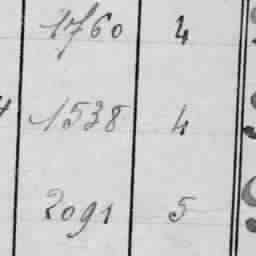 1760 4
1538 4
2091 5